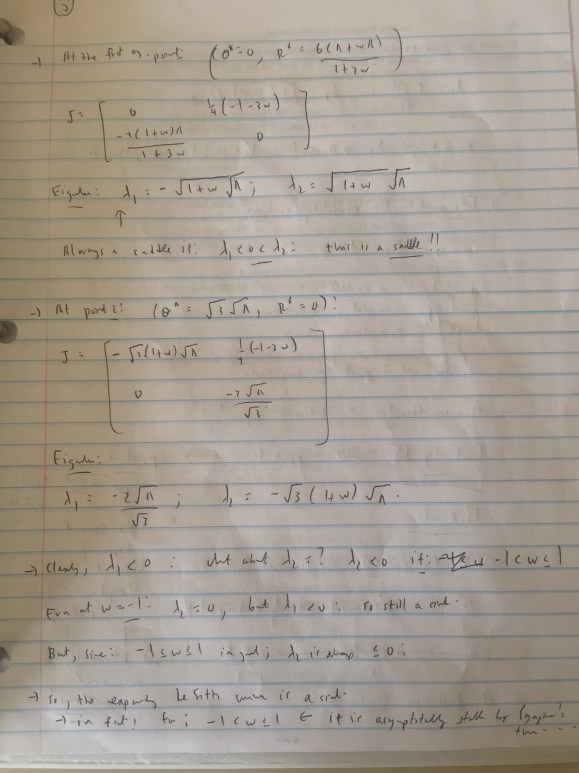 ③
→ At the first eq. point: (θ* = 0, R* = 6(Λ+wΛ) / 1+3w)
J = [ 0 ¼(-1-3w)
-4(1+w)Λ / 1+3w 0 ]
Eigvalues: λ₁ = -√1+w √Λ ; λ₂ = √1+w √Λ
↑
Always a saddle if: λ₁ < 0 < λ₂ : this is a saddle !!
→ At point 2: (θ* = √3 √Λ, R* = 0) :
J = [ -√3(1+w)√Λ ¼(-1-3w)
0 -2√Λ / √3 ]
Eigvalues:
λ₁ = -2√Λ / √3 ; λ₂ = -√3 (1+w) √Λ .
→ Clearly, λ₁ < 0 : what about λ₂ = ? λ₂ < 0 if: -1 < w ≤ 1
Even at w = -1: λ₂ = 0, but λ₁ < 0 ; so still a sink.
But, since: -1 ≤ w ≤ 1 in general; λ₂ is always ≤ 0 ;
→ So, the expanding de Sitter universe is a sink.
→ in fact, for ; -1 < w ≤ 1 ← it is asymptotically stable by Lyapunov's
thm...